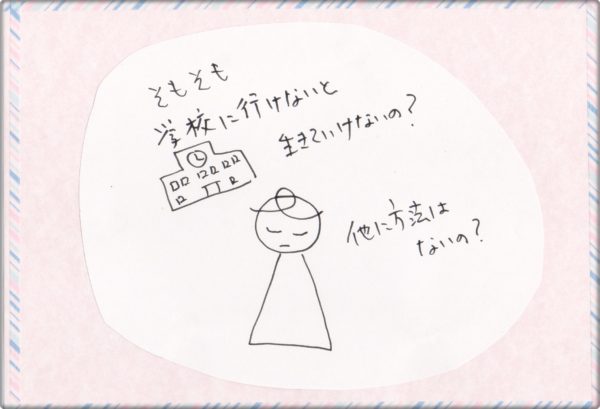 そもそも
学校に行けないと
生きていけないの?
他に方法は
ないの?